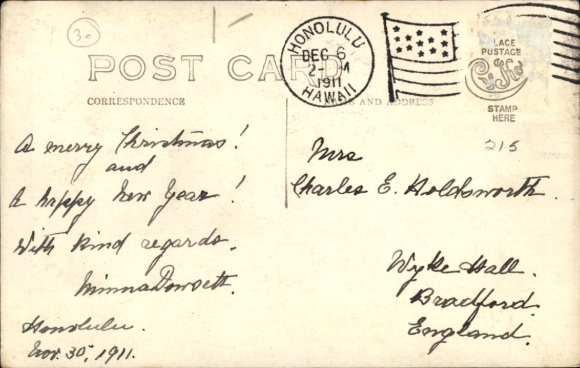 3c
POST CARD
HONOLULU
DEC 6
2 - M
1911
HAWAII
PLACE
POSTAGE
STAMP
HERE
215
CORRESPONDENCE
NAME AND ADDRESS
A merry Christmas!
and
A happy New Year!
With kind regards.
Minna Dowsett.
Honolulu.
Nov. 30, 1911.
Mrs
Charles E. Holdsworth.
Wyke Hall.
Bradford.
England.